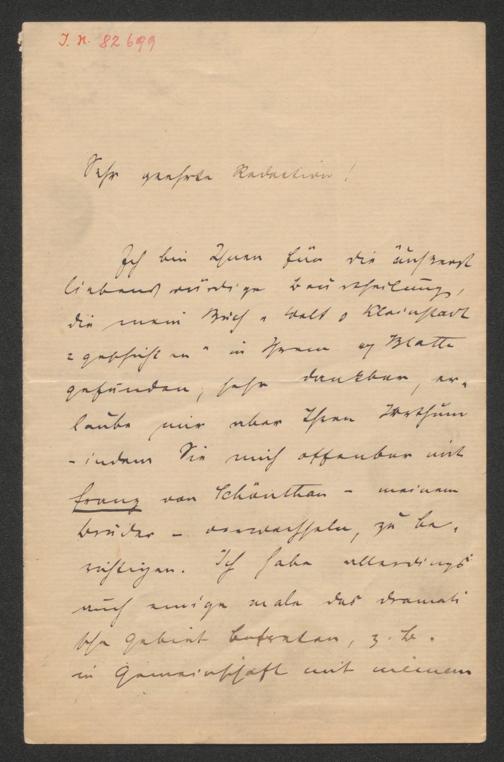 J. N. 82699
Sehr geehrte Redaction!
Ich bin Ihnen für die äußerst
liebenswürdige Beurtheilung,
die mein Buch „Welt- & Kleinstadt
=geschichten" in Ihrem Blatte
gefunden, sehr dankbar, er-
laube mir aber Ihren Irrthum
- indem Sie mich offenbar mit
Franz von Schönthan - meinem
Bruder - verwechseln, zu be-
richtigen. Ich habe allerdings
auch einige male das dramati
sche Gebiet betreten, z. B.
in Gemeinschaft mit meinem